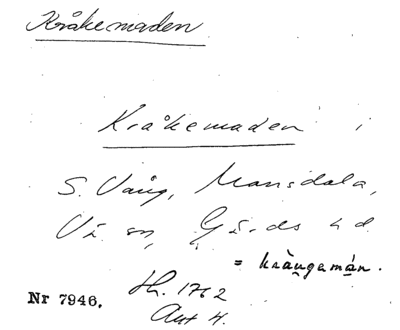 Kråkemaden
Kråkemaden i
S. Vång, Mansdala,
Vä sn, Gärds hd
= kràŋgamán.
Nr 7946. Hh. 1762
Akt 4.